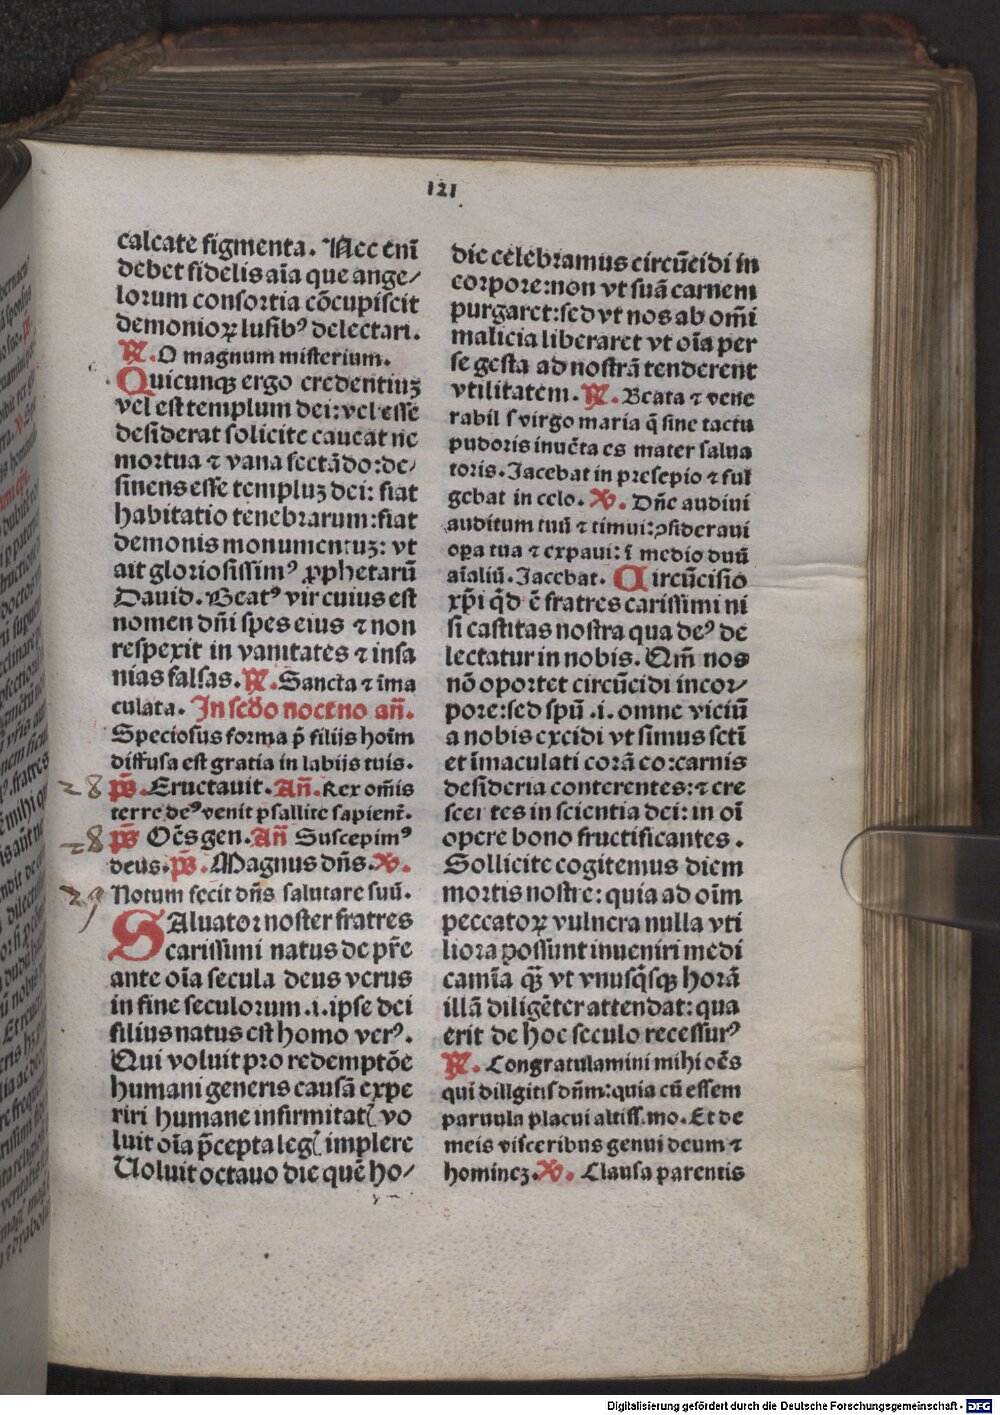 121
calcate figmenta. Nec enī
debet fidelis aīa que ange⸗
lorum consortia cōcupiscit
demonioꝝ lusibꝰ delectari.
℟. O magnum misterium.
Quicunqꝫ ergo credentiuꝫ
vel est templum dei: vel esse
desiderat solicite caueat ne
mortua ⁊ vana sectādo: de⸗
sinens esse templuꝫ dei: fiat
habitatio tenebrarum: fiat
demonis monumentuꝫ: vt
ait gloriosissimꝰ ꝓphetarū
Dauid. Beatꝰ vir cuius est
nomen dn̄i spes eius ⁊ non
respexit in vanitates ⁊ insa
nias falsas. ℟. Sancta ⁊ īma
culata. In scd̄o nocturno an̄.
Speciosus forma p̄ filijs hoīm
diffusa est gratia in labijs tuis.
28 ps̄. Eructauit. An̄. Rex om̄is
terre deꝰ venit psallite sapient̄.
28 ps̄ Oēs gen. An̄ Suscepimꝰ
deus. ps̄. Magnus dn̄s. ℣.
29 Notum fecit dn̄s salutare suū.
SAluator noster fratres
carissimi natus de pr̄e
ante oīa secula deus verus
in fine seculorum .i. ipse dei
filius natus est homo verꝰ.
Qui voluit pro redemptōe
humani generis causā expe
riri humane infirmitatꝭ vo
luit oīa p̄cepta legꝭ implere
Uoluit octauo die quē ho⸗
die celebramus circūcidi in
corpore: non vt suā carnem
purgaret: sed vt nos ab om̄i
malicia liberaret vt oīa per
se gesta ad nostrā tenderent
vtilitatem. ℟. Beata ⁊ vene
rabilis virgo maria q̄ sine tactu
pudoris inuēta es mater salua
toris. Iacebat in presepio ⁊ ful
gebat in celo. ℣. Dn̄e audiui
auditum tuū ⁊ timui: ꝯsideraui
oꝑa tua ⁊ expaui: ī medio duū
aīaliū. Iacebat. Circūcisio
xp̄i qd̄ ē fratres carissimi ni
si castitas nostra qua deꝰ de
lectatur in nobis. Qm̄ nos
nō oportet circūcidi in cor⸗
pore: sed spū .i. omne viciū
a nobis excidi vt simus sct̄i
et īmaculati corā eo: carnis
desideria conterentes: ⁊ cre
scentes in scientia dei: in oī
opere bono fructificantes.
Sollicite cogitemus diem
mortis nostre: quia ad oīm
peccatoꝝ vulnera nulla vti
liora possunt inueniri medi
camīa qꝫ̄ vt vnusqꝫsqꝫ horā
illā diligēter attendat: qua
erit de hoc seculo recessurꝰ
℟. Congratulamini mihi oēs
qui diligitis dn̄m: quia cū essem
paruula placui altissimo. Et de
meis visceribus genui deum ⁊
homineꝫ. ℣. Clausa parentis
Digitalisierung gefördert durch die Deutsche Forschungsgemeinschaft - DFG